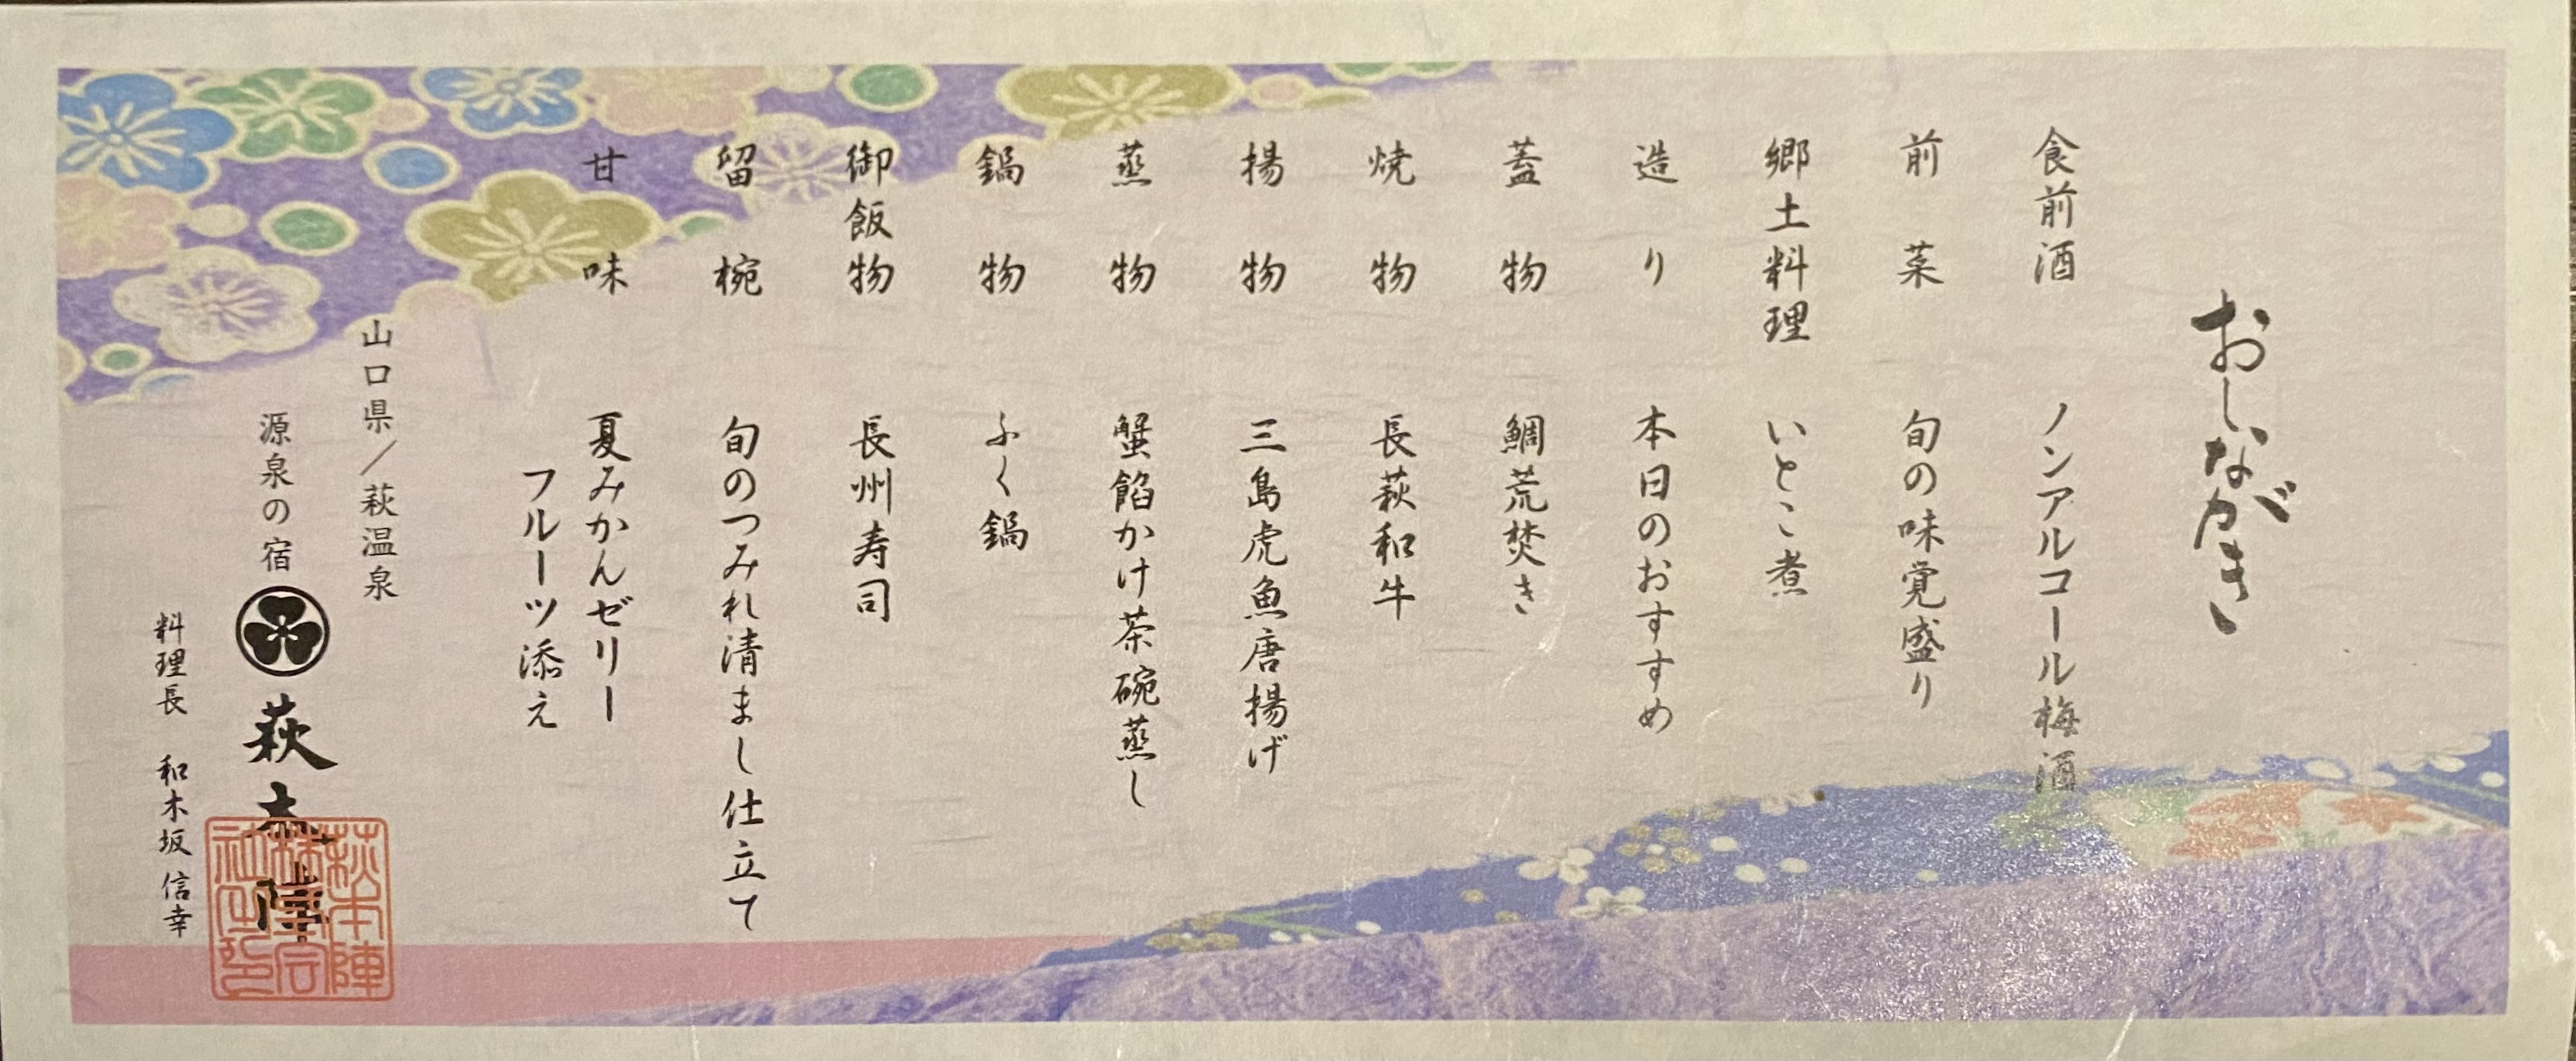 おしながき
食前酒　ノンアルコール梅酒
前菜　旬の味覚盛り
郷土料理　いとこ煮
造り　本日のおすすめ
蓋物　鯛荒焚き
焼物　長萩和牛
揚物　三島虎魚唐揚げ
蒸物　蟹餡かけ茶碗蒸し
鍋物　ふく鍋
御飯物　長州寿司
留椀　旬のつみれ清まし仕立て
甘味　夏みかんゼリー
フルーツ添え
山口県／萩温泉
源泉の宿　萩本陣
料理長　和木坂 信幸